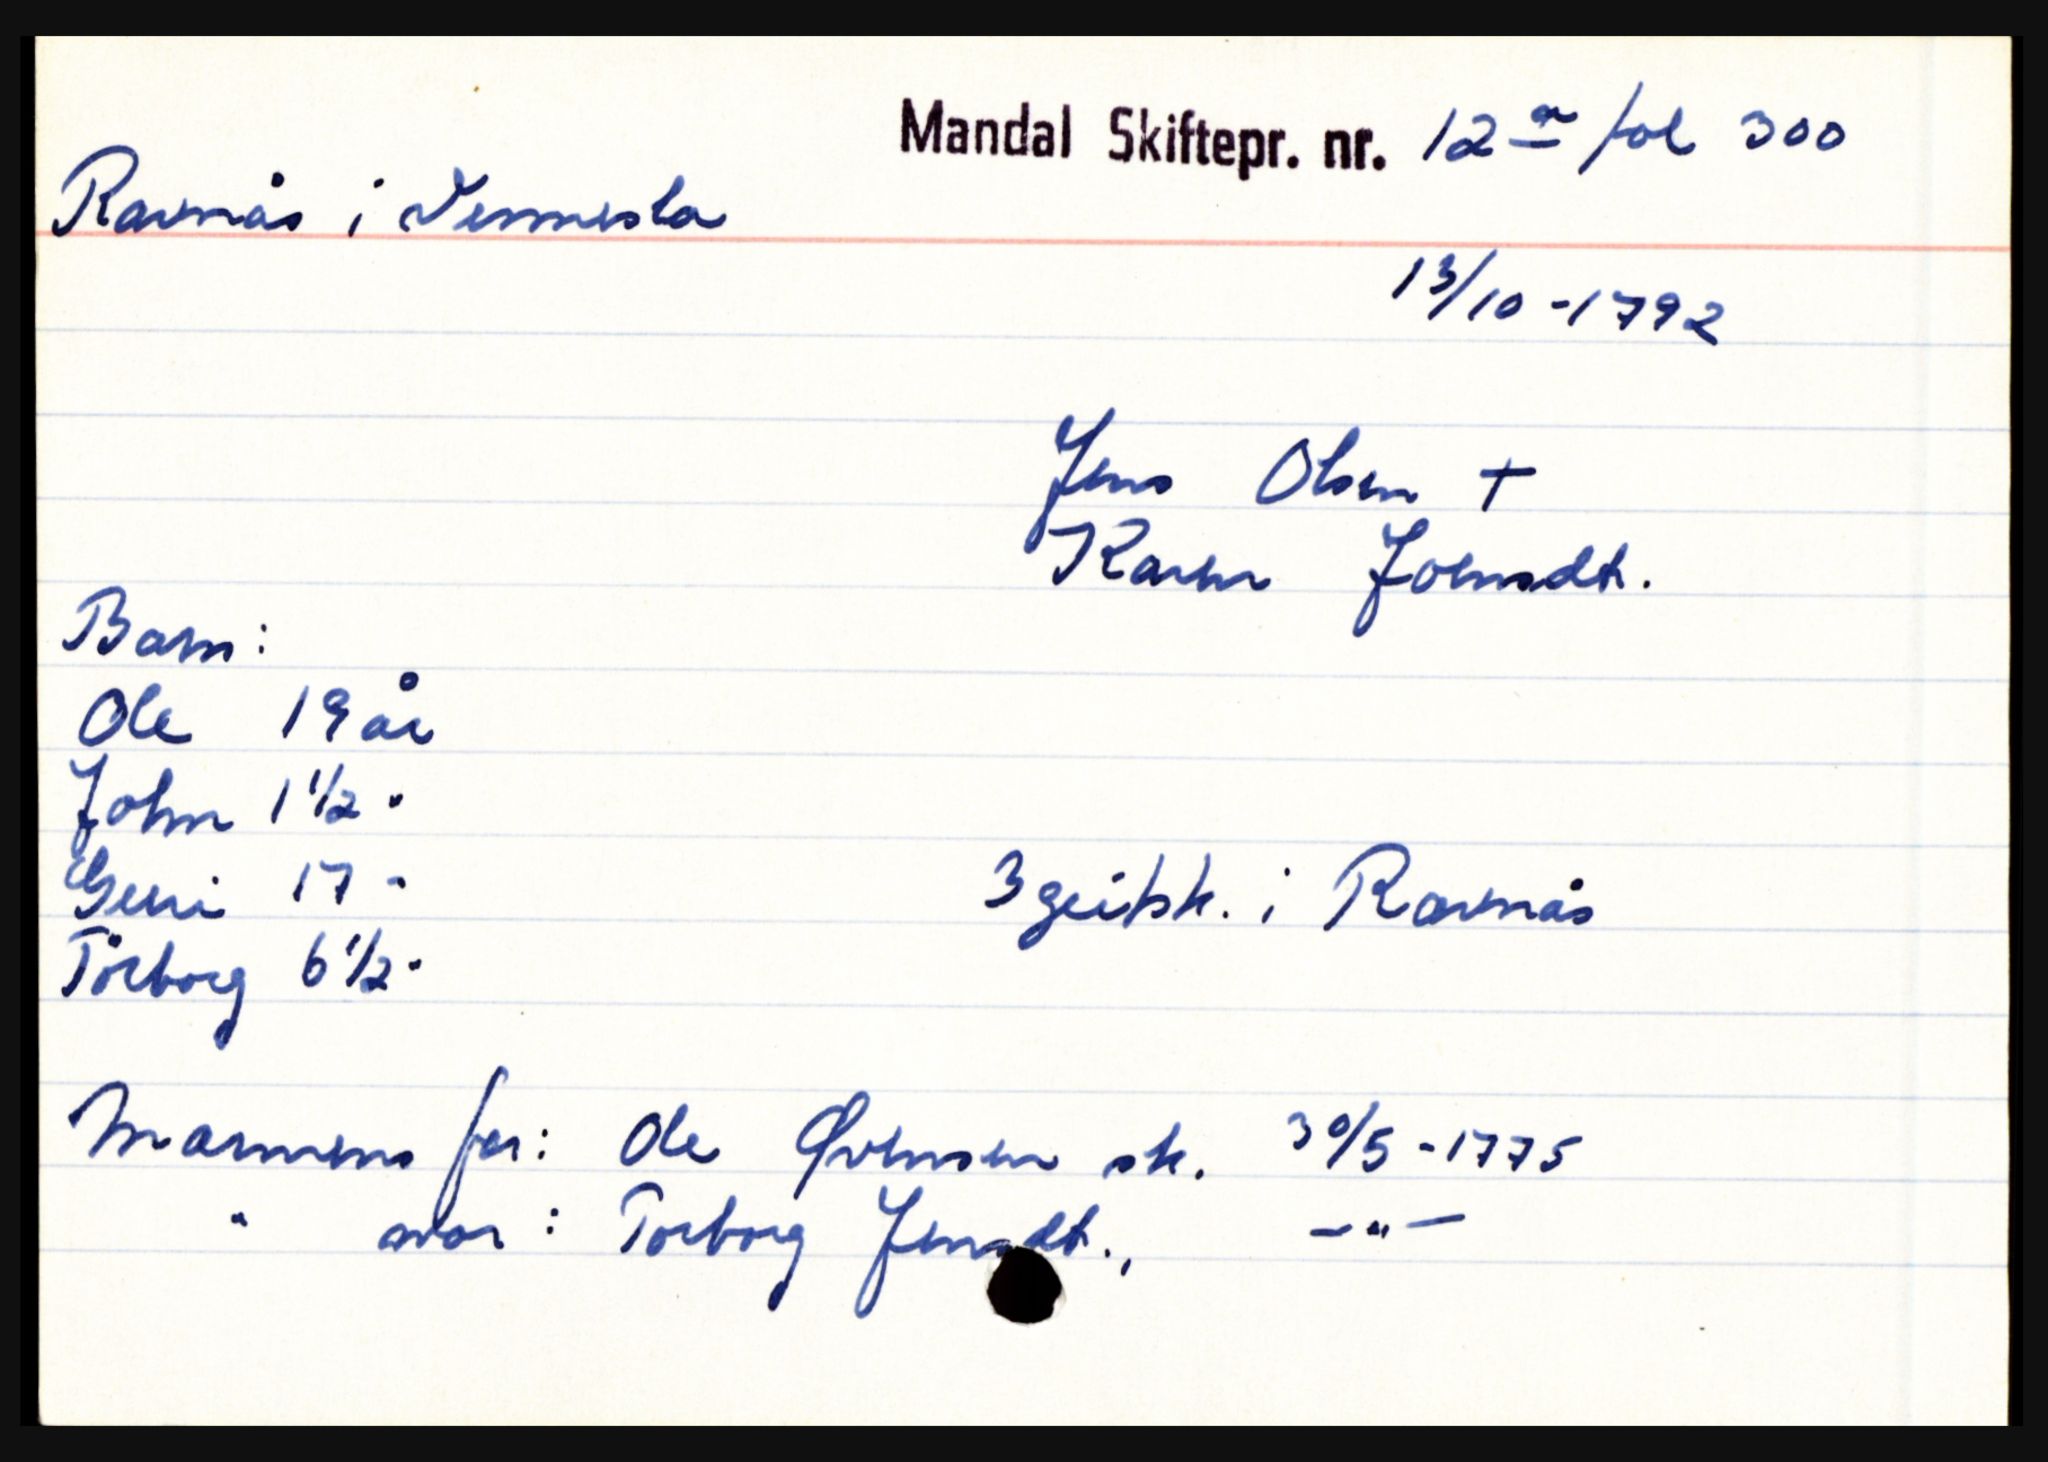 Mandal Skiftepr. nr. 12 a fol 300
Ravnås i Vennesla
13/10 - 1792
Jens Olsen +
Karen Johnsdt.
Barn:
Ole 19 år
John 1 1/2 "
Gunni 17 "
3 geitsk. i Ravnås
Torborg 6 1/2 "
Mannens far: Ole Øvensen sk. 30/5 - 1775
" mor: Torborg Jensdt., — " —